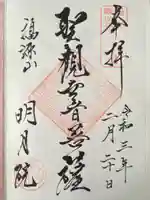 奉拝
令和三年
二月二十日
聖観世音菩薩
福源山
明月院